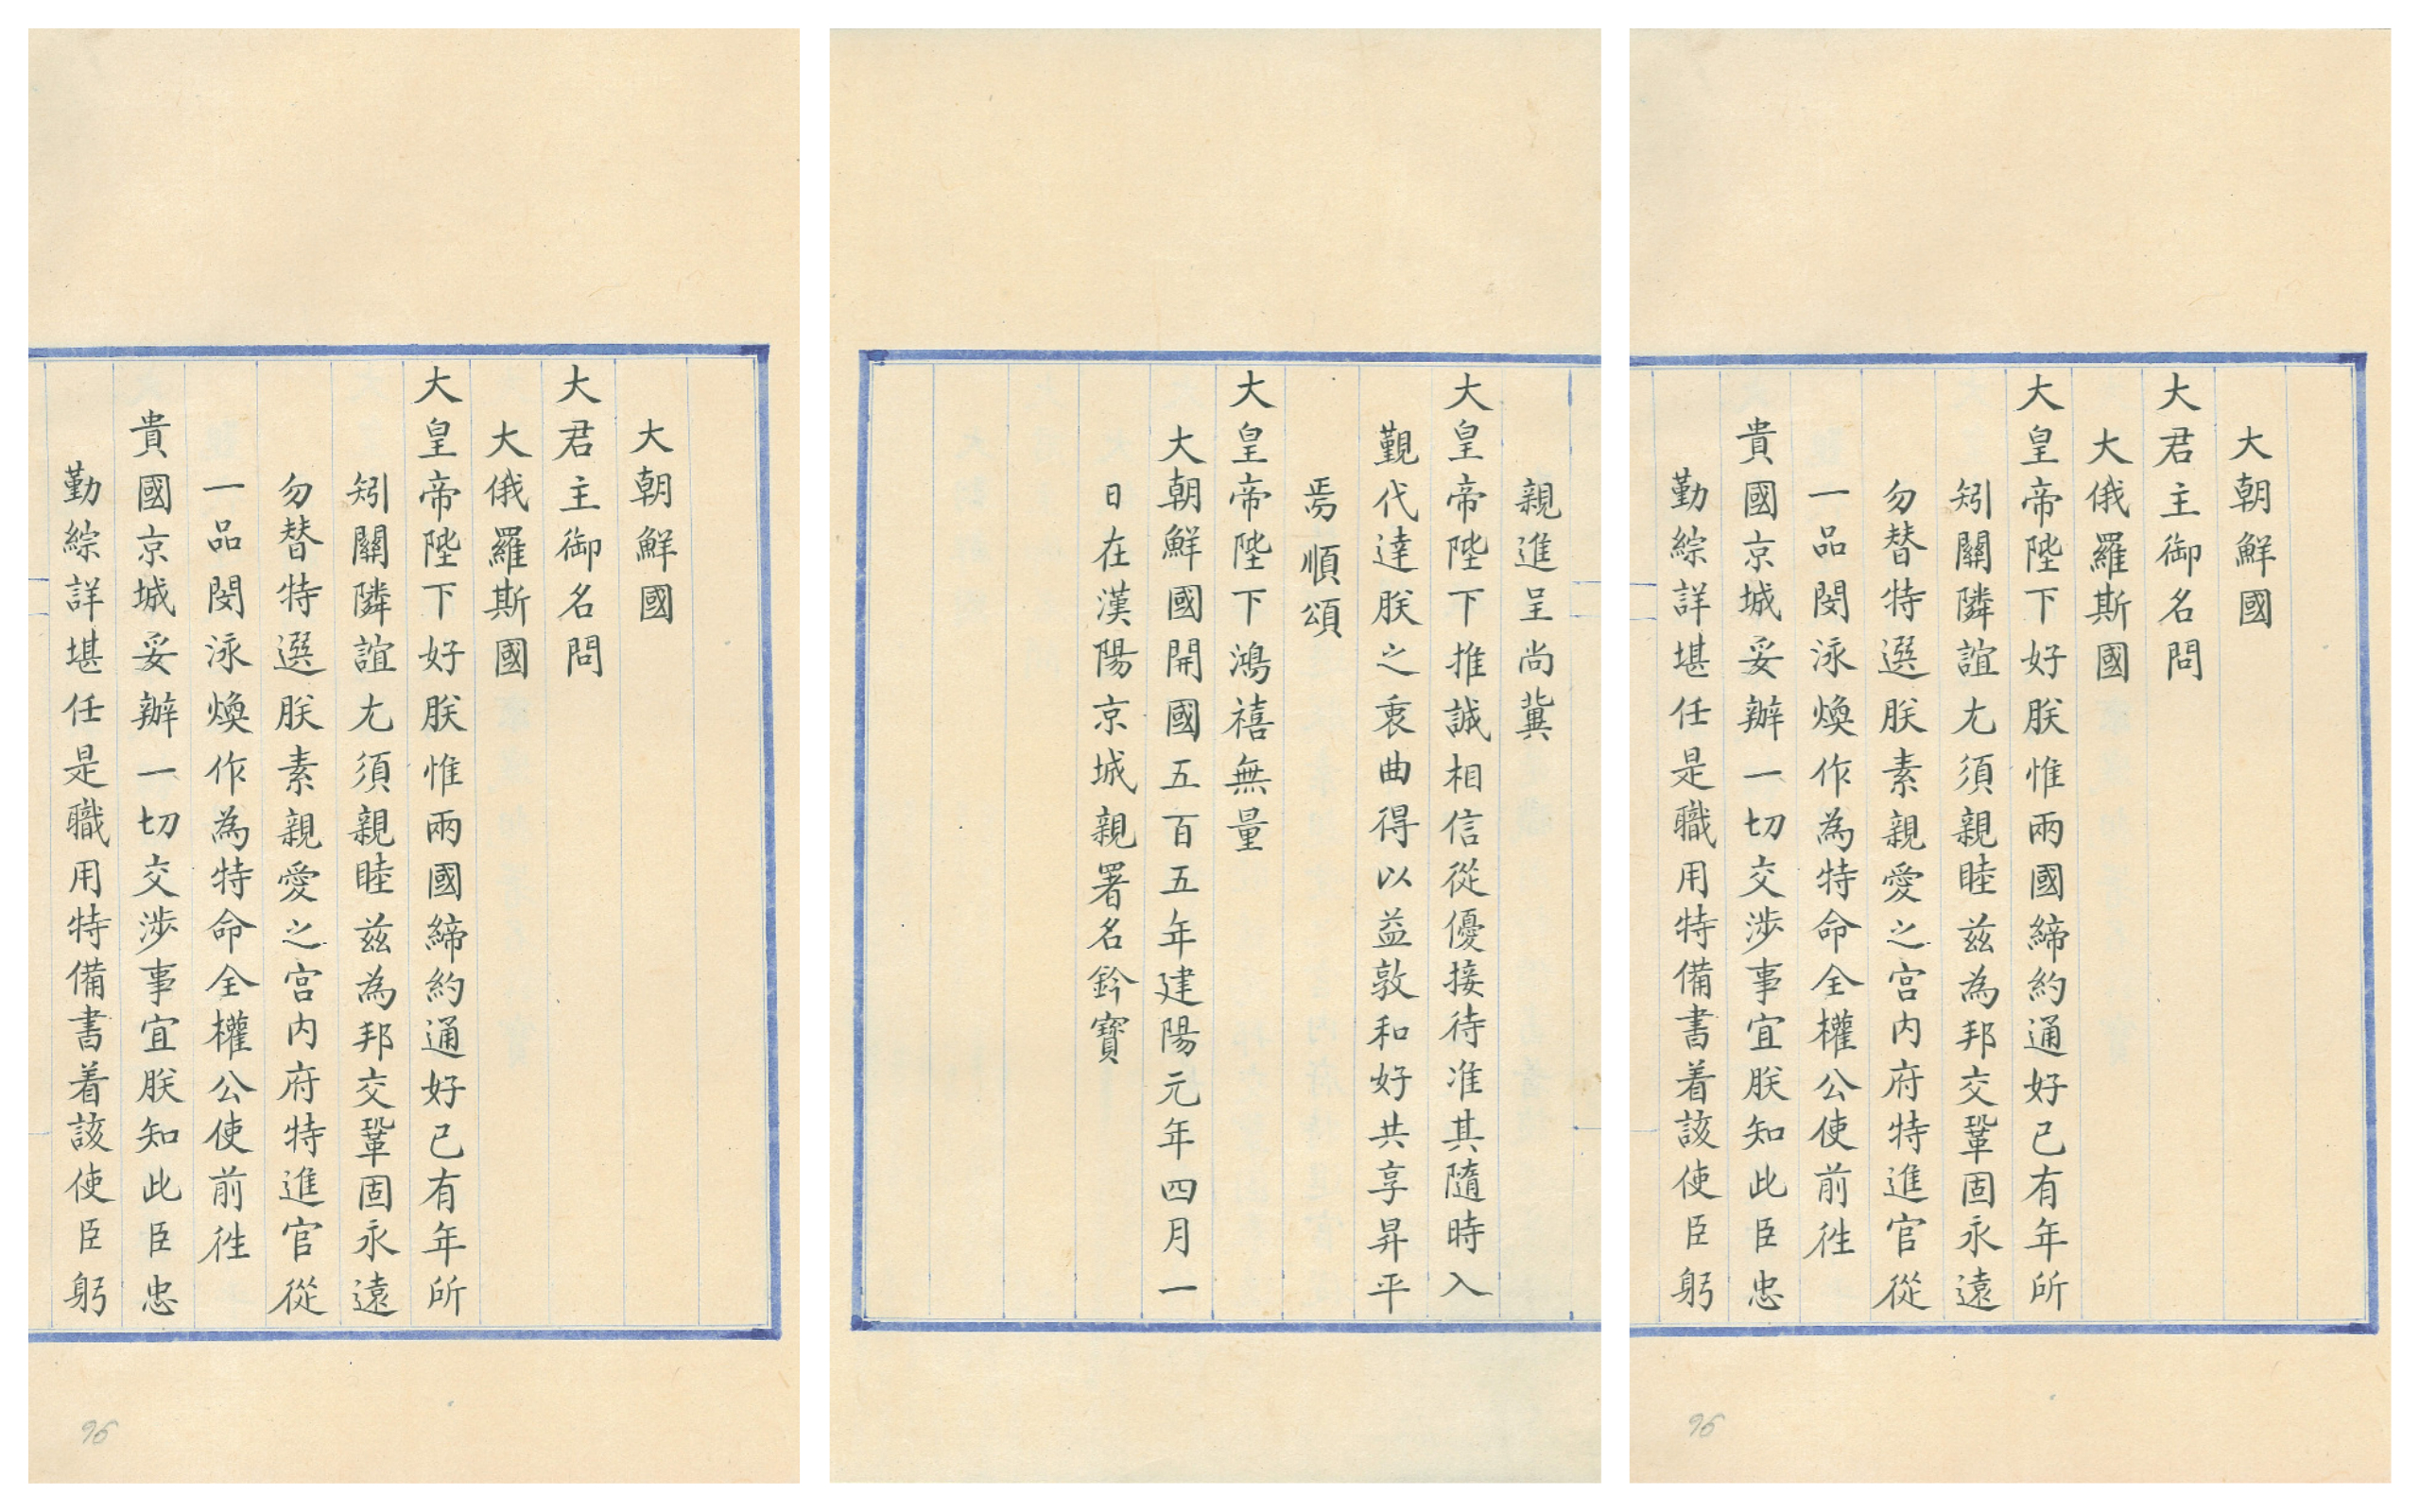 大朝鮮國
大君主御名問
大俄羅斯國
大皇帝陛下好朕惟兩國締約通好已有年所
矧關隣誼尤須親睦茲為邦交鞏固永遠
勿替特選朕素親愛之宮内府特進官從
一品閔泳煥作為特命全權公使前徃
貴國京城妥辦一切交涉事宜朕知此臣忠
勤綜詳堪任是職用特備書着該使臣躬
96
親進呈尚冀
大皇帝陛下推誠相信從優接待准其隨時入
覲代達朕之衷曲得以益敦和好共享昇平
焉順頌
大皇帝陛下鴻禧無量
大朝鮮國開國五百五年建陽元年四月一
日在漢陽京城親署名鈐寶
大朝鮮國
大君主御名問
大俄羅斯國
大皇帝陛下好朕惟兩國締約通好已有年所
矧關隣誼尤須親睦茲為邦交鞏固永遠
勿替特選朕素親愛之宮内府特進官從
一品閔泳煥作為特命全權公使前徃
貴國京城妥辦一切交涉事宜朕知此臣忠
勤綜詳堪任是職用特備書着該使臣躬
96